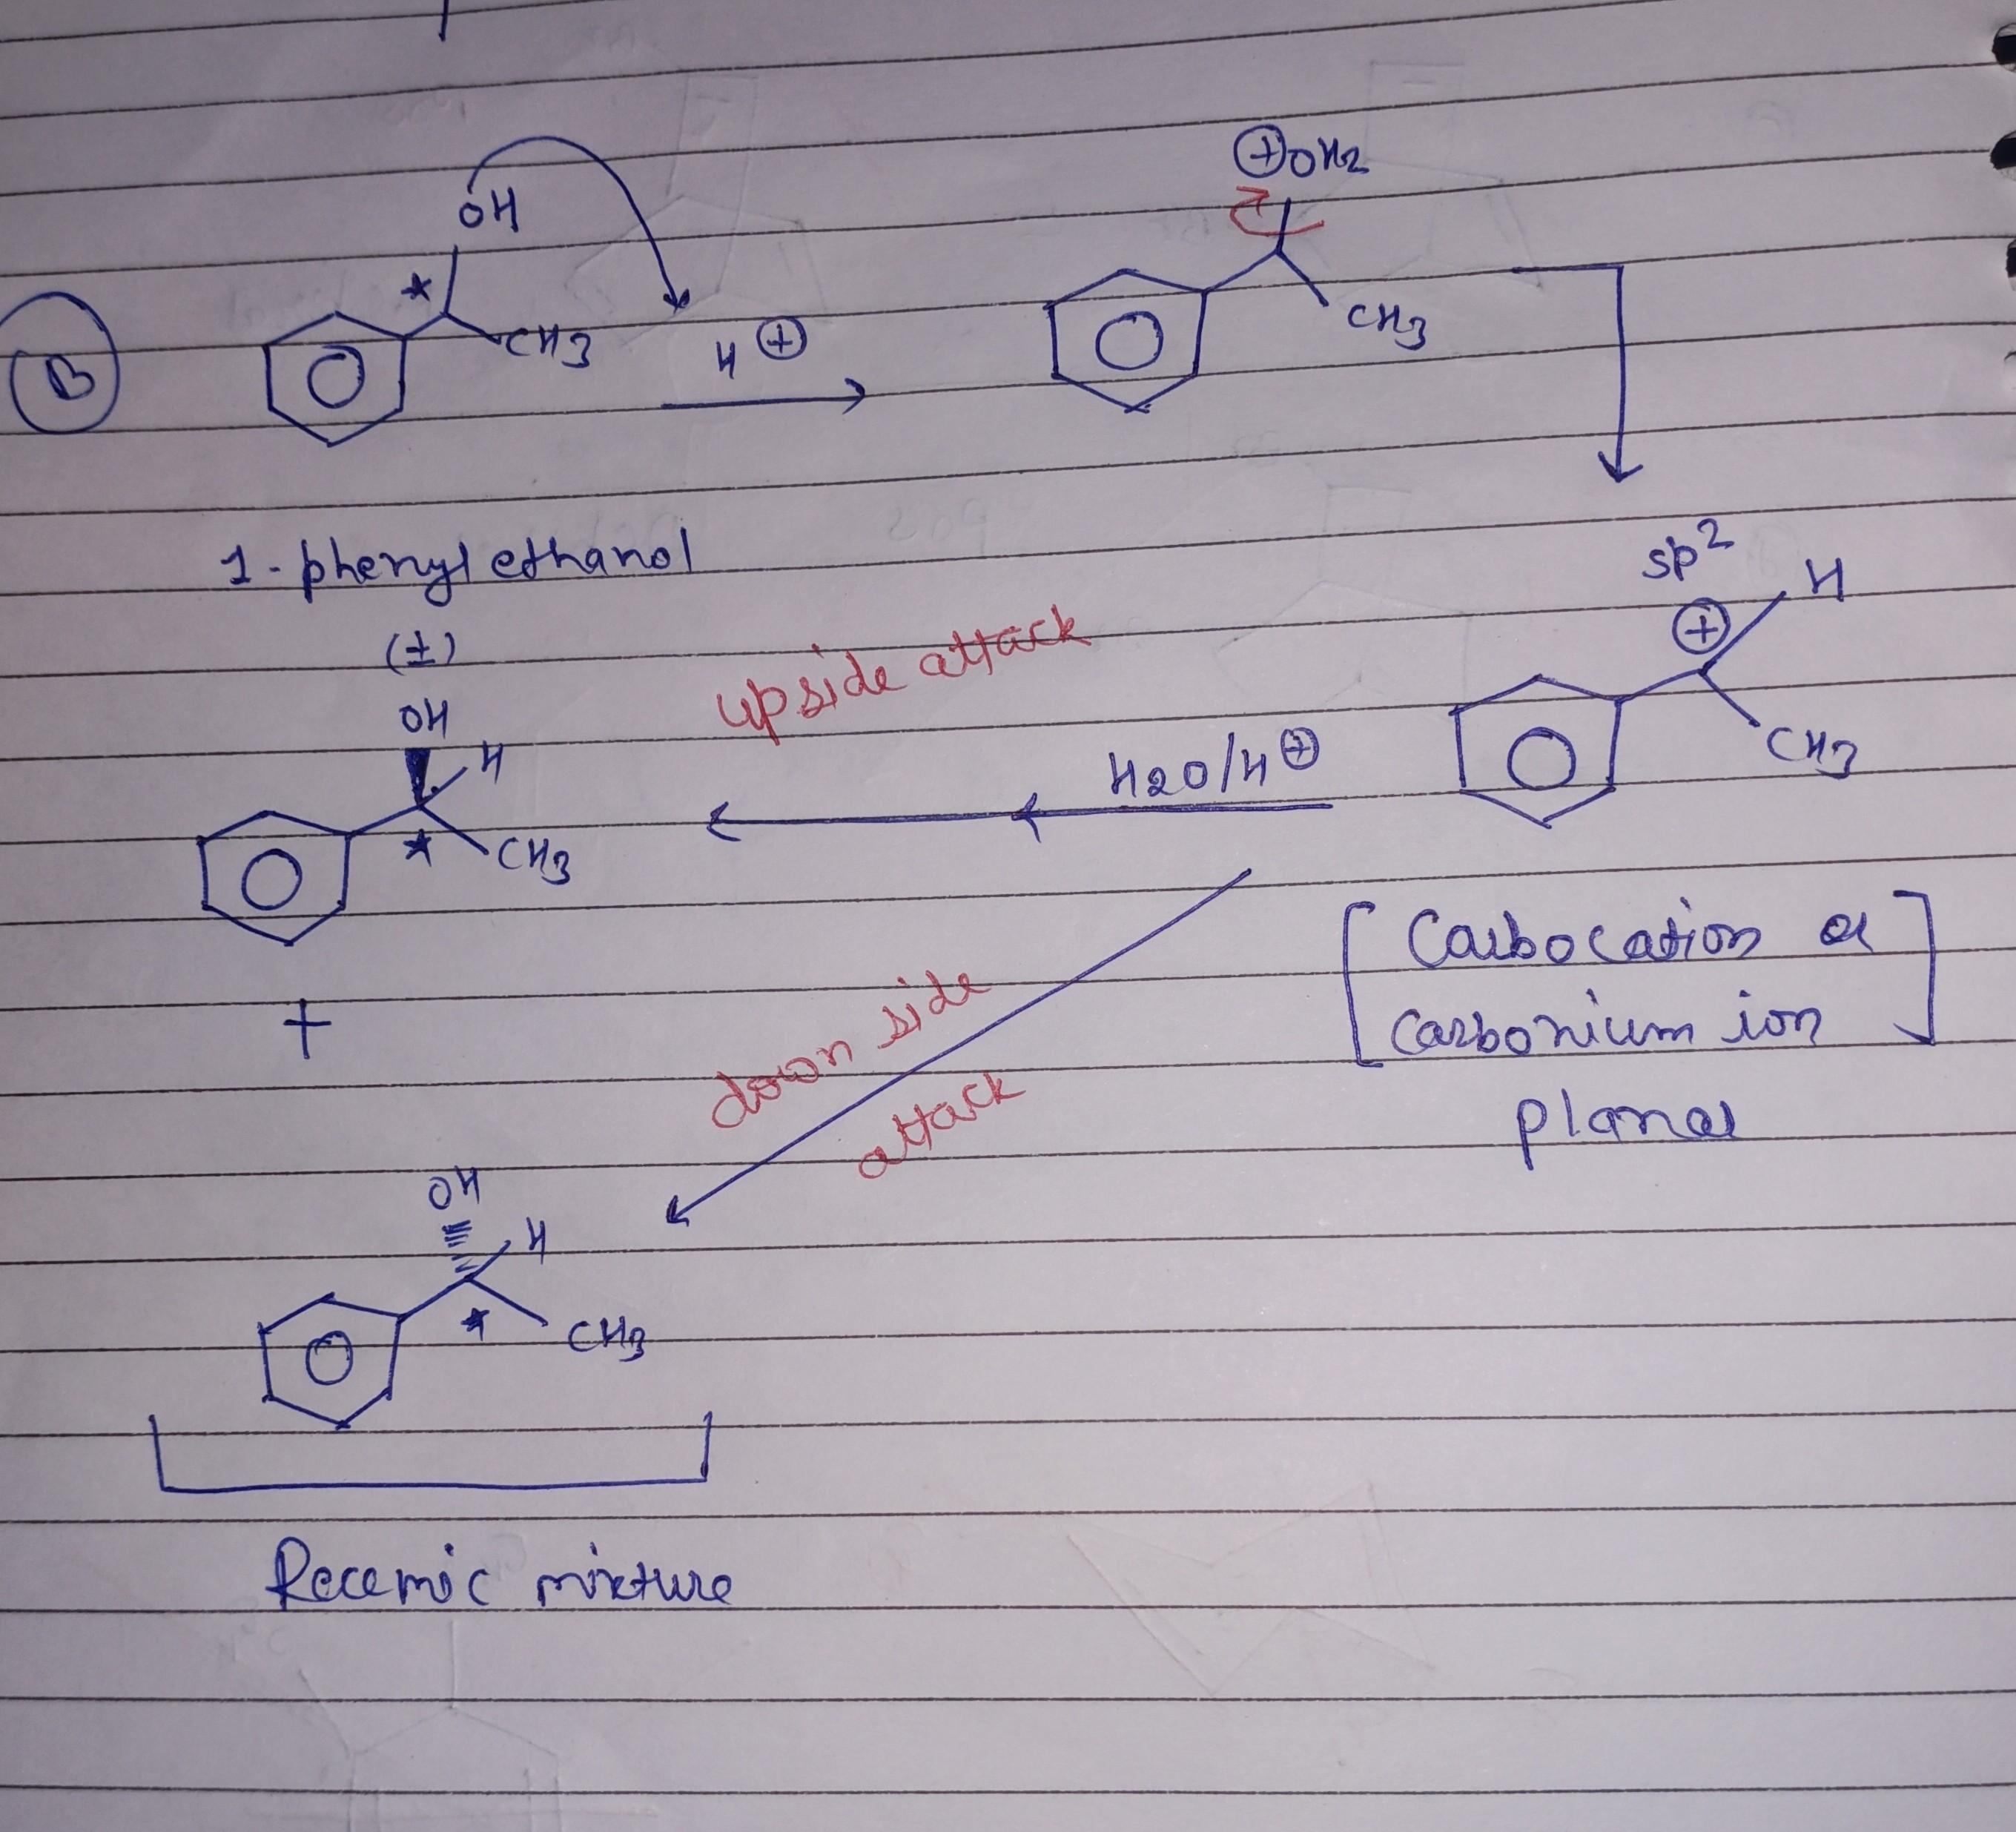 ⊕OH2
OH
*
CH3
CH3
B
H⊕
1-phenyl ethanol
(±)
sp2
⊕ H
CH3
upside attack
OH
H
*
CH3
H2O/H⊕
[Carbocation or
carbonium ion]
planar
+
down side
attack
OH
H
*
CH3
Recemic mixture